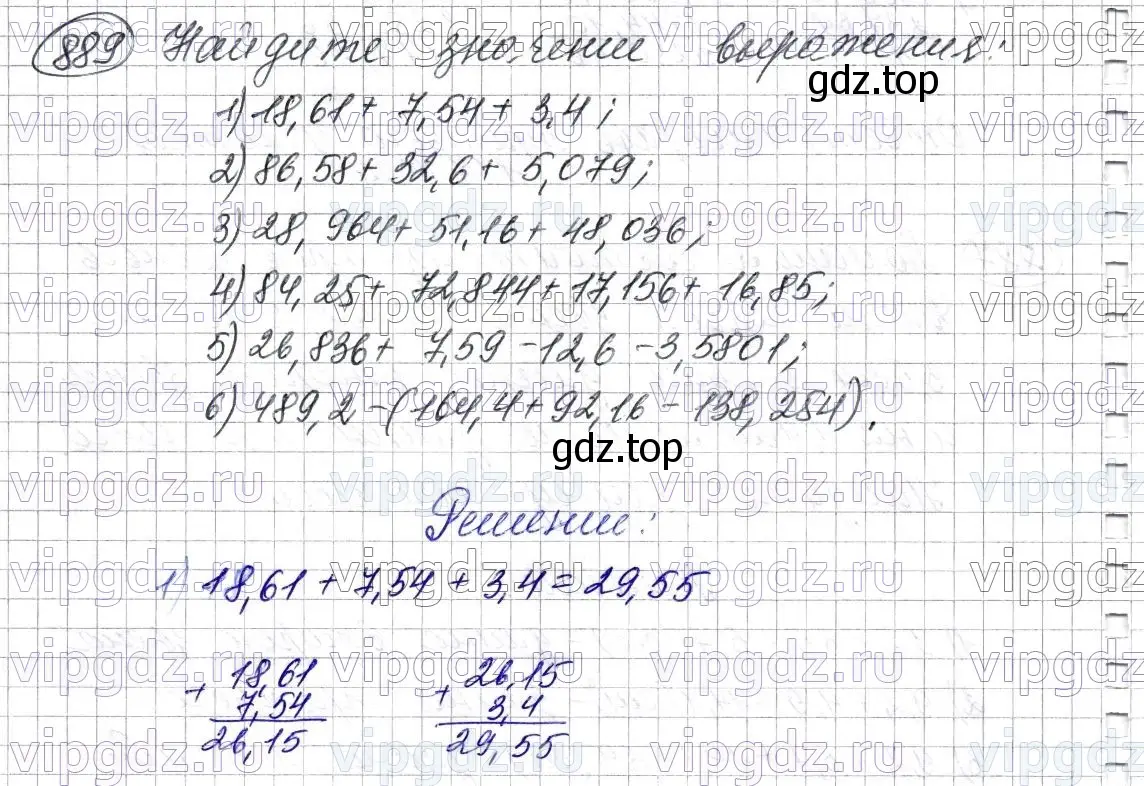 889 Найдите значении выражения:
gdz.top
1) 18,61 + 7,54 + 3,4;
2) 86,58 + 32,6 + 5,079;
3) 28,964 + 51,16 + 48,036;
4) 84,25 + 72,844 + 17,156 + 16,85;
5) 26,836 + 7,59 - 12,6 - 3,5801;
6) 489,2 - (164,4 + 92,16 - 138,254).
gdz.top
Решении:
1) 18,61 + 7,54 + 3,4 = 29,55
+ 18,61
7,54
26,15
+ 26,15
3,4
29,55
vipgdz.ru